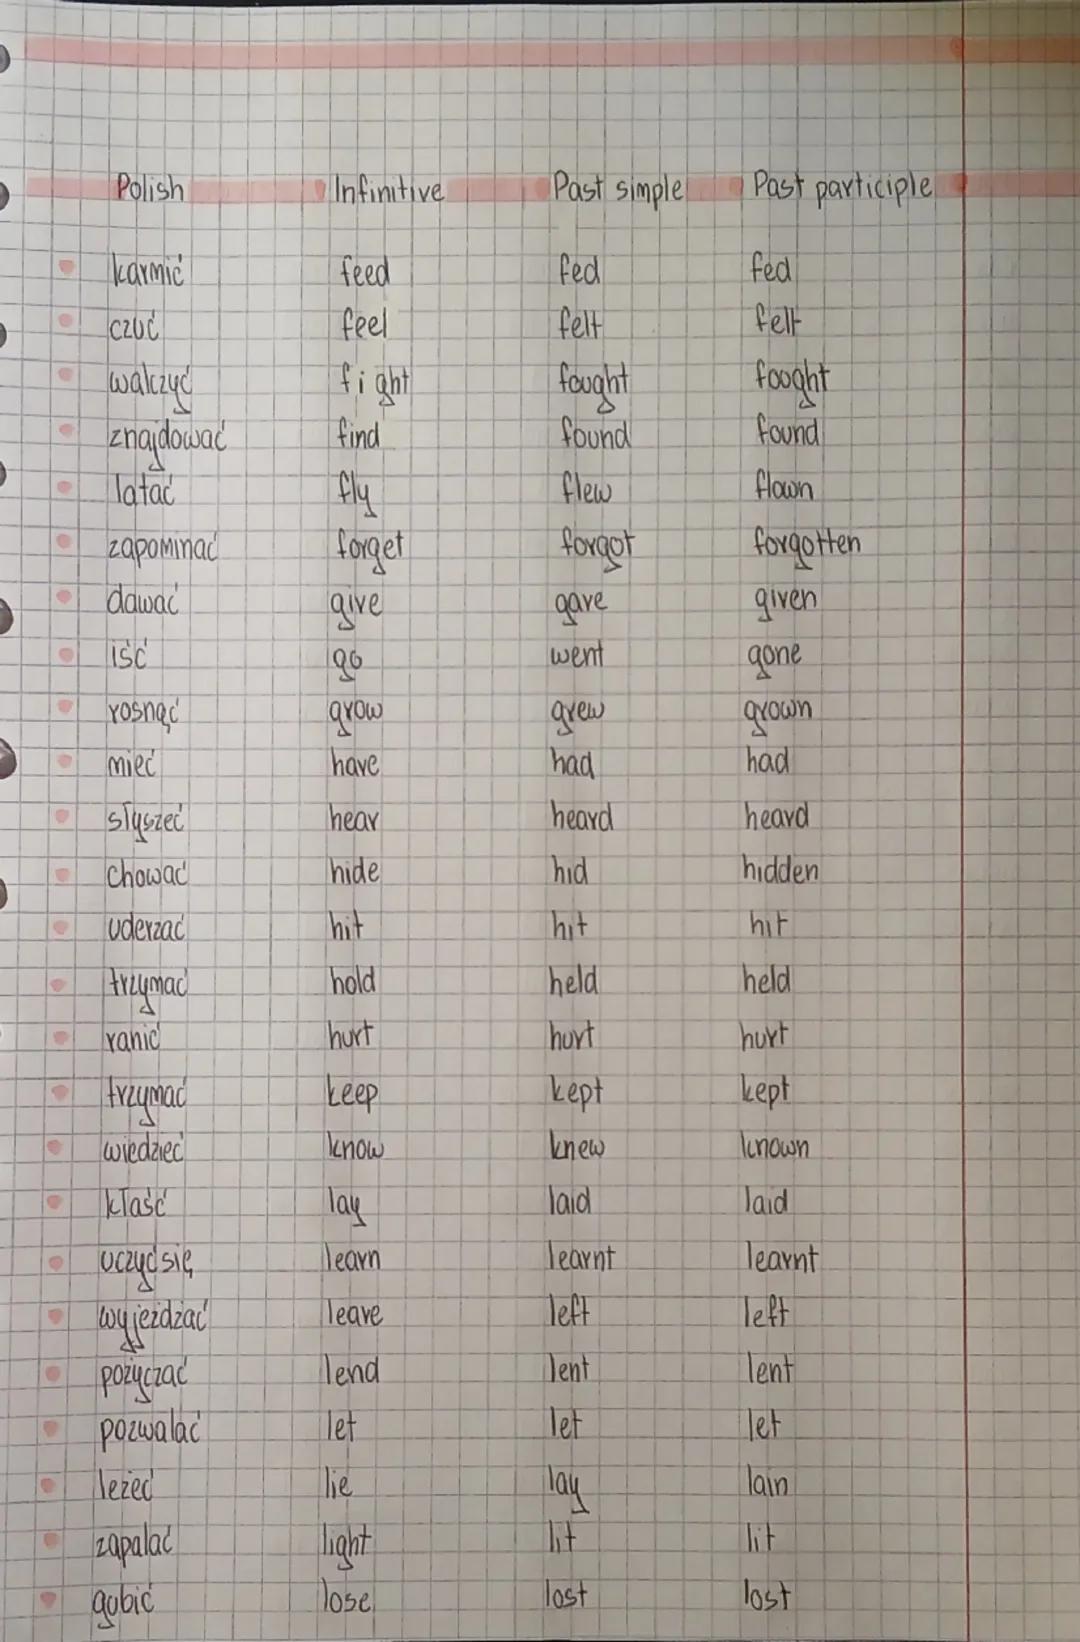 Polish Infinitive Past simple Past participle
karmić feed fed fed
czuć feel felt felt
walczyć fight fought fought
znajdować find found found
latać fly flew flown
zapominać forget forgot forgotten
dawać give gave given
iść go went gone
rosnąć grow grew grown
mieć have had had
słyszeć hear heard heard
chować hide hid hidden
uderzać hit hit hit
trzymać hold held held
ranić hurt hurt hurt
trzymać keep kept kept
wiedzieć know knew known
kłaść lay laid laid
uczyć się learn learnt learnt
wyjeżdżać leave left left
pożyczać lend lent lent
pozwalać let let let
leżeć lie lay lain
zapalać light lit lit
gubić lose lost lost